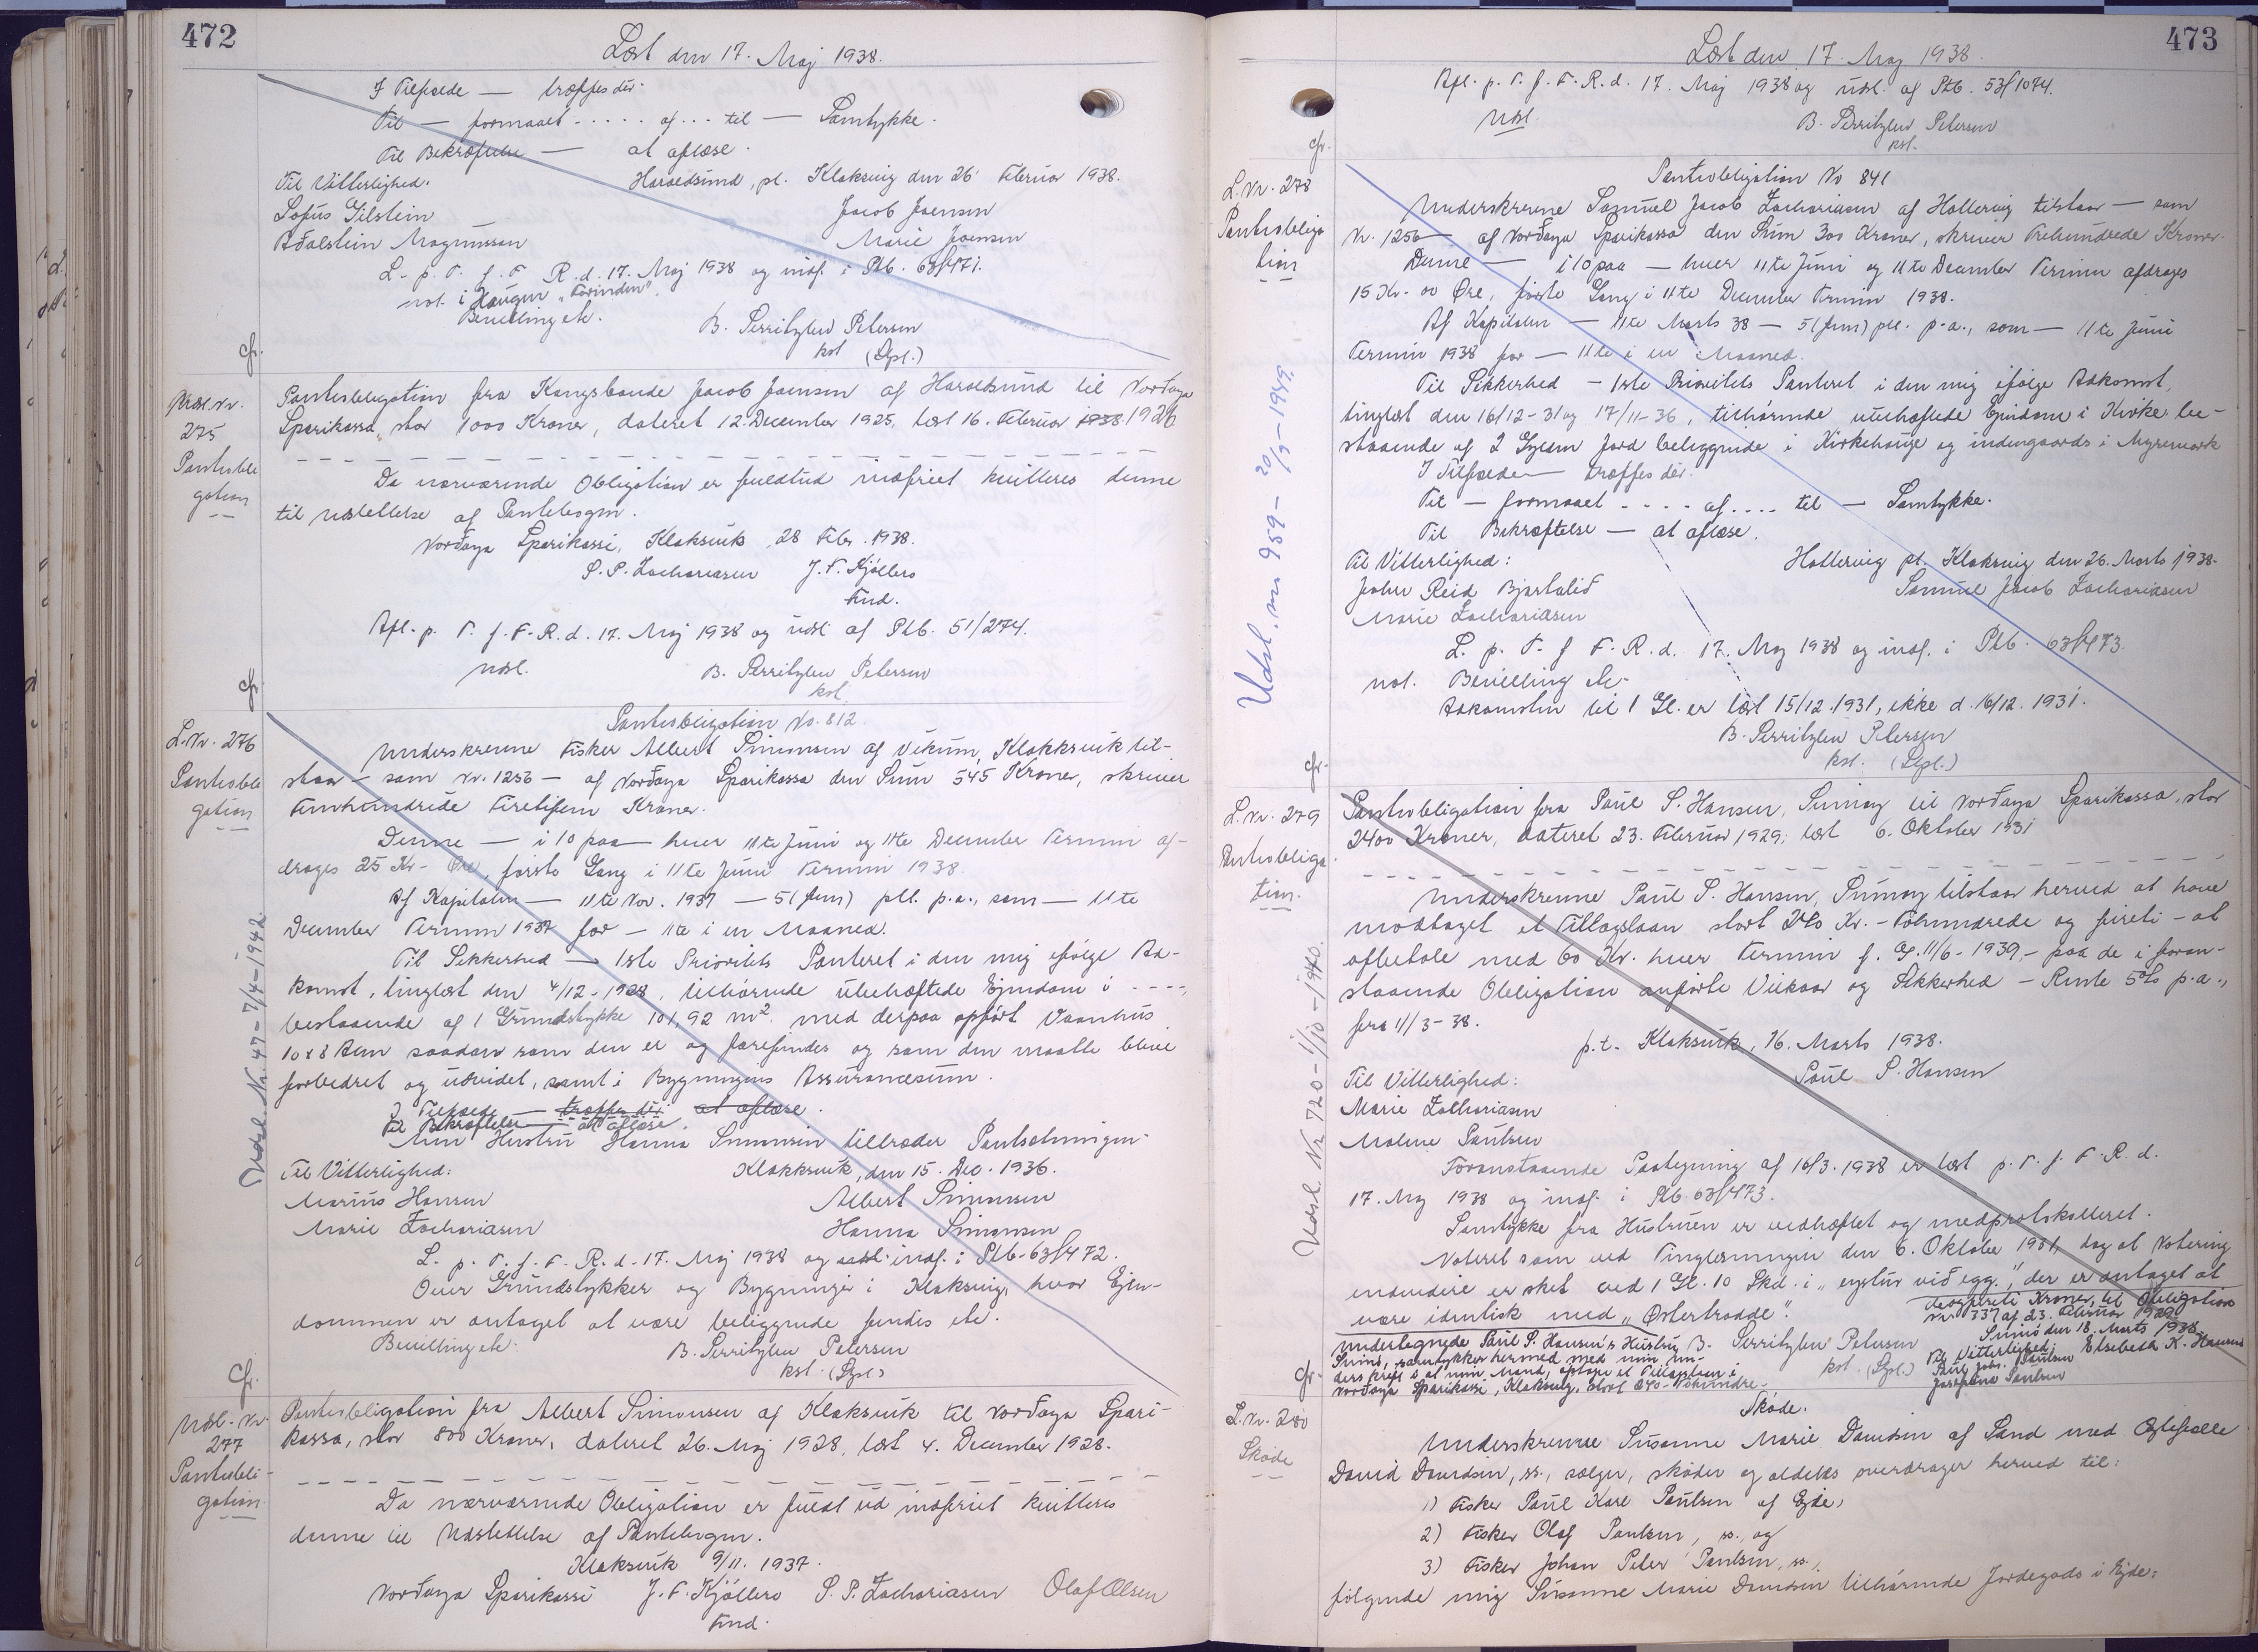 472
Læst den 17. Maj 1938.
I Tilfælde — træffes dér.
Til — formaaet - - - - - af ... til — Samtykke.
Til Bekræftelse — at aflæse.
Til Vitterlighed. Haraldsund, pt. Klaksvig den 26 Februar 1938.
Sofus Gilstein Jacob Joensen
Aðalstein Magnussen Marie Joensen
L. p. T. f. F. R. d. 17. Maj 1938 og indf. i Ptb. 63f471.
not. i Haugen „Torinden".
Bevilling etc.
B. Sverritzlew Petersen
kst (Spl.)
cfr.
Udsl. Nr. 275 Pantobligation
Pantobligation fra Kongsbonde Jacob Joensen af Haraldsund til Norðoya
Sparikassa, stor 1000 Kroner, dateret 12. December 1925, læst 16. Februar 1938. 1926
Da nærværende Obligation er fuldtud indfriet kvitteres denne
til Udslettelse af Pantebogen.
Norðoya Sparikassi, Klaksvik, 28 Febr. 1938.
S. P. Zachariasen J. F. Kjølbro
Fmd.
Afl. p. T. f. F. R. d. 17. Maj 1938 og udsl. af Ptb. 51/274.
Udsl. B. Sverritzlew Petersen
kst
cfr.
L. Nr. 276 Pantobligation
Pantobligation No. 812.
Underskrevne Fisker Albert Simonsen af Vikum, Klakksvik til-
staar — som Nr. 1256 — af Norðoya Sparikassa den Sum 545 Kroner, skriver
Femhundrede Firetifem Kroner.
Denne — i 10 paa — hver 11te Juni og 11te December Termin af-
drages 25 Kr. - Øre, første Gang i 11te Juni Termin 1938.
Af Kapitalen — 11te Nov. 1937 — 5 (fem) pCt. p.a., som — 11te
December Termin 1937 for — 11te i en Maaned.
Til Sikkerhed — 1ste Prioritets Panteret i den mig ifølge Ad-
komst, tinglæst den 4/12-1928, tilhørende ubehæftede Ejendom i - - - -,
bestaaende af 1 Grundstykke 101,92 m² med derpaa opført Vaanhus
10x8 Alen saadan som den er og forefindes og som den maatte blive
forbedret og udvidet, samt i Bygningens Assurancesum.
I Tilfælde — træffes dér at aflæse.
Til Bekræftelse — at aflæse.
Min Hustru Hanna Simonsen tiltræder Pantsætningen.
Til Vitterlighed: Klakksvik, den 15. Dec. 1936.
Marius Hansen Albert Simonsen
Marie Zachariasen Hanna Simonsen
L. p. T. f. F. R. d. 17. Maj 1938 og udsl. indf. i Ptb. 63f472.
Over Grundstykker og Bygninger i Klaksvig, hvor Ejen-
dommen er antaget at være beliggende findes etc.
Bevilling etc. B. Sverritzlew Petersen
kst. (Spl.)
Udsl. Nr. 47 - 7/4-1942.
cfr.
Udsl. Nr. 277 Pantobligation
Pantobligation fra Albert Simonsen af Klaksvik til Norðoya Spari-
kassa, stor 800 Kroner, dateret 26. Maj 1928, læst 4. December 1928.
Da nærværende Obligation er fuldt ud indfriet kvitteres
denne til Udslettelse af Pantebogen.
Klaksvik 9/11. 1937.
Norðoya Sparikassi J. F. Kjølbro S. P. Zachariasen Olaf Olsen
Fmd.
473
Læst den 17. Maj 1938.
Afl. p. T. f. F. R. d. 17. Maj 1938 og udsl. af Ptb. 53f1074.
Udsl. B. Sverritzlew Petersen
kst.
cfr.
L. Nr. 278 Pantobligation
Pantobligation No 841
Underskrevne Samuel Jacob Zachariasen af Hattervig tilstaar — som
Nr. 1256 — af Norðoya Sparikassa den Sum 300 Kroner, skriver Trehundrede Kroner.
Denne — i 10 paa — hver 11te Juni og 11te December Termin afdrages
15 Kr. 00 Øre, første Gang i 11te December Termin 1938.
Af Kapitalen — 11te Marts 38 — 5 (fem) pCt. p.a., som — 11te Juni
Termin 1938 for — 11te i en Maaned.
Til Sikkerhed — 1ste Prioritets Panteret i den mig ifølge Adkomst,
tinglæst den 16/12-31 og 17/11-36, tilhørende ubehæftede Ejendom i Kirke be-
staaende af 2 Gylden Jord beliggende i Kirkehauge og indengaards i Myremark
I Tilfælde — træffes dér.
Til — formaaet - - - - af .... til — Samtykke.
Til Bekræftelse — at aflæse.
Til Vitterlighed: Hattervig pt. Klaksvig den 26. Marts 1938.
John Reid Bjartalið Samuel Jacob Zachariasen
Marie Zachariasen
L. p. T. f. F. R. d. 17. Maj 1938 og indf. i Ptb. 63f473.
not. Bevilling etc.
Adkomsten til 1 Gl. er læst 15/12.1931, ikke d. 16/12. 1931.
B. Sverritzlew Petersen
kst. (Spl.)
Udsl. nr 959 - 20/5-1949.
cfr.
L. Nr. 279 Pantobligation.
Pantobligation fra Poul S. Hansen, Svinoy til Norðoya Sparikassa, stor
2400 Kroner, dateret 23. Februar 1929, læst 6. Oktober 1931
Underskrevne Poul S. Hansen, Svinoy tilstaar herved at have
modtaget et Tillægslaan stort 240 Kr. - Tohundrede og fireti - at
afbetale med 60 Kr. hver Termin f. G. 11/6-1939, - paa de i foran-
staaende Obligation anførte Vilkaar og Sikkerhed - Rente 5% p.a.,
fra 11/3-38.
p.t. Klaksvik, 16. Marts 1938.
Til Vitterlighed: Poul S. Hansen
Marie Zachariasen
Malene Poulsen
Foranstaaende Paategning af 16/3.1938 er læst p. T. f. F. R. d.
17. Maj 1938 og indf. i Ptb. 63f473.
Samtykke fra Hustruen er vedhæftet og medprotokolleret.
Noteret som ved Tinglæsningen den 6. Oktober 1931, dog at Notering
endvidere er sket ved 1 Gl. 10 Skd. i „eystur við egg", der er antaget at
være identisk med „Østertrodde".
Undertegnede Poul S. Hansen's Hustru
Svinó, samtykker hermed med min un-
derskrift i at min Mand, optager et Tillægslaan i
Norðoya Sparikassi, Klaksvig, stort 240- Tohundre-
deogfireti Kroner, til Obligation
Nr. 337 af 23. Februar 1929.
Svinó den 18. Marts 1938.
Til Vitterlighed: Elsebeth K. Hansen
Poul Johs. Poulsen
Josefina Poulsen
B. Sverritzlew Petersen
kst. (Spl.)
Udsl. Nr. 720 - 1/10-1940.
cfr.
L. Nr. 280 Skøde
Skøde.
Underskrevne Susanne Marie Davidsen af Sand med Ægtefælle
David Davidsen, ss., sælger, skøder og aldeles overdrager herved til:
1) Fisker Poul Kare Poulsen af Ejde,
2) Fisker Olaf Poulsen, ss., og
3) Fisker Johan Peter Poulsen, ss.,
følgende mig Susanne Marie Davidsen tilhørende Jordegods i Ejde: